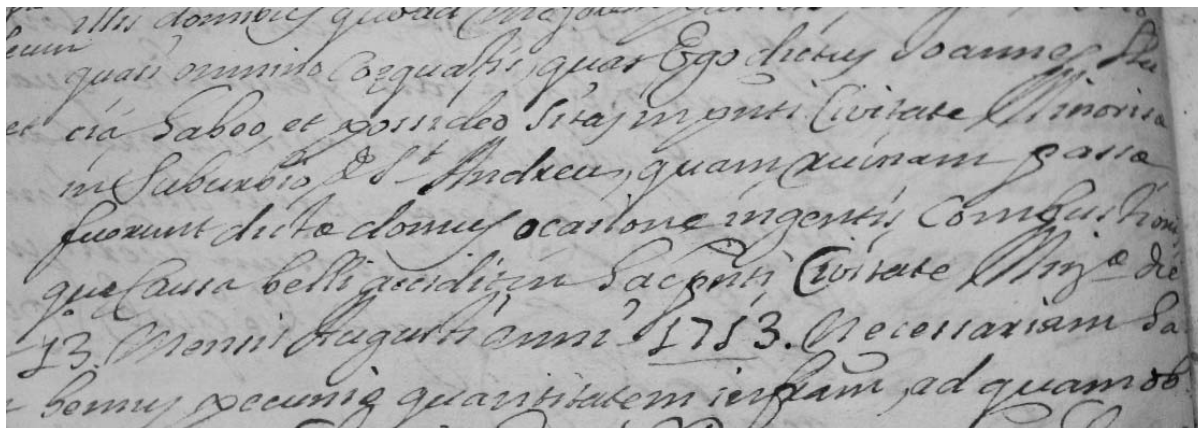 illis domibus quoad majorem partem
quasi omnino coequatis, quas Ego dictus Joannes
cia habeo, et possideo sitas in pnti Civitate Minorisæ
in suburbio de St Andreu, quam ruinam passæ
fuerunt dictæ domus ocasione ingentis Combustionis
quæ Causa belli accidit in hac pnti Civitate Minæ die
13. Mensis Augusti anni 1713. Necessariam ha
bemus pecuniæ quantitatem infram, ad quam ob